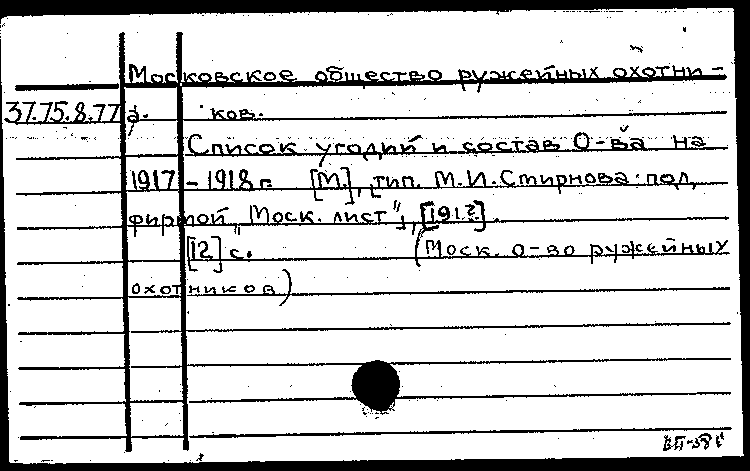 Московское общество ружейных охотни-
37.75.8.77 а. ков.
Список угодий и состав О-ва на
1917-1918 г. [М.], [тип. М.И.Смирнова под
фирмой "Моск. лист"], [191?].
[12] с. (Моск. о-во ружейных
охотников)